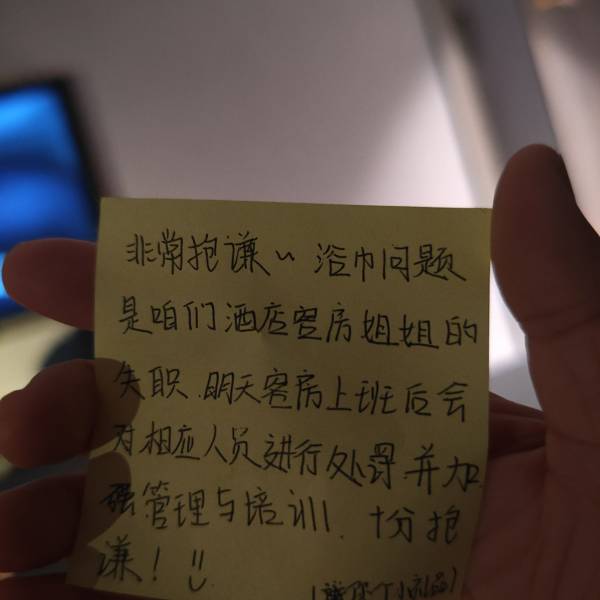 非常抱谦~ 浴巾问题
是咱们酒店客房姐姐的
失职.明天客房上班后会
对相应人员进行处罚.并加
强管理与培训.十分抱
谦!
(送你个小礼品)